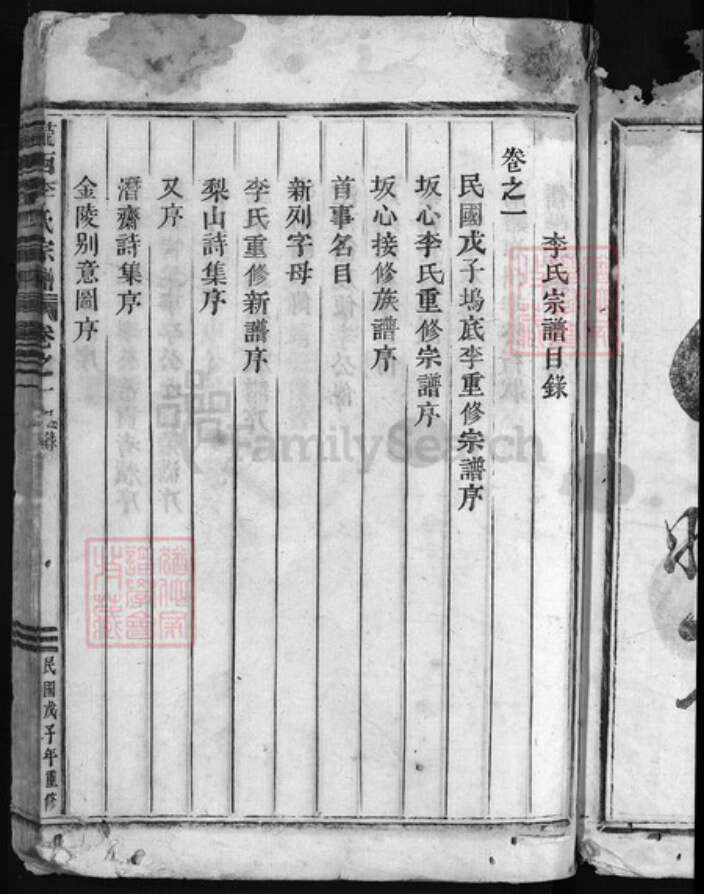 李氏宗譜目錄
卷之一
民國戊子塢底李重修宗譜序
坂心李氏重修宗譜序
坂心接修族譜序
首事名目
新列字母
李氏重修新譜序
梨山詩集序
又序
潛齋詩集序
金陵别意圖序
隴西李氏宗譜
卷之一
目錄
民國戊子年重修
FamilySearch